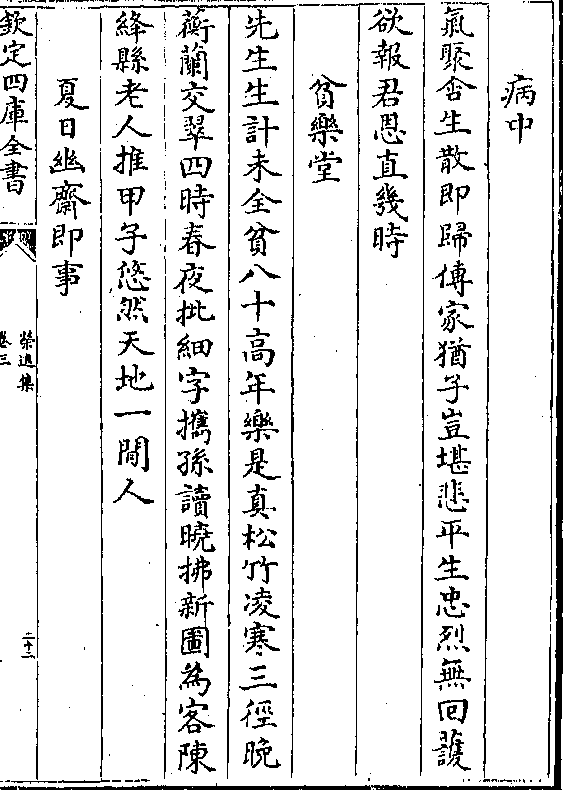 病中
氣聚含生散即歸傳家猶子豈堪悲平生忠烈無回䕶
欲報君恩直幾時
貧樂堂
先生生計未全貧八十高年樂是真松竹凌寒三徑晩
蘅蘭交翠四時春夜批細字攜孫讀曉拂新圖為客陳
絳縣老人推甲子悠然天地一閒人
夏日幽齋即事
欽定四庫全書
榮進集
卷三
二十三